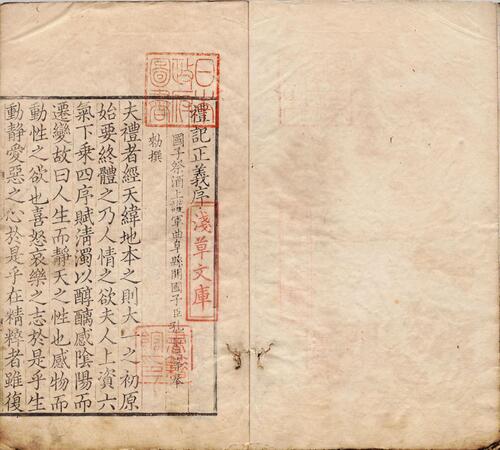 日本政府圖書
禮記正義序
淺草文庫
國子祭酒上護軍曲阜縣開國子臣
勑撰
夫禮者經天緯地本之則大一之初原
始要終體之乃人情之欲夫人上資六
氣下乘四序賦清濁以醇醨感陰陽而
遷變故曰人生而靜天之性也感物而
動性之欲也喜怒哀樂之志於是乎生
動靜愛惡之心於是乎在精粹者雖復